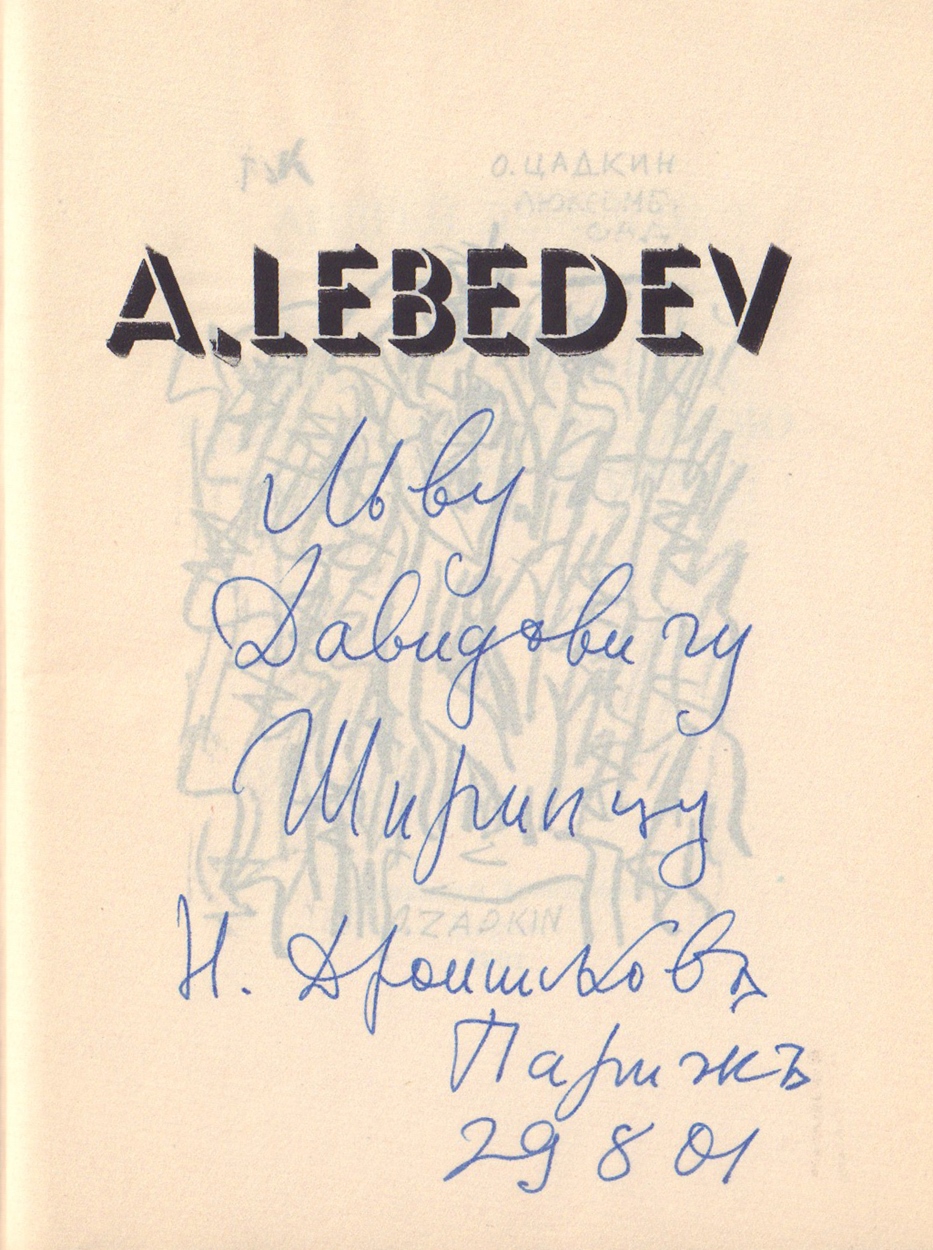 О. ЦАДКИН
САД
A. LEBEDEV
Льву
Давидовичу
Ширинцу
ZADKIN
Н. Дронниковъ
Парижъ
29 8 01